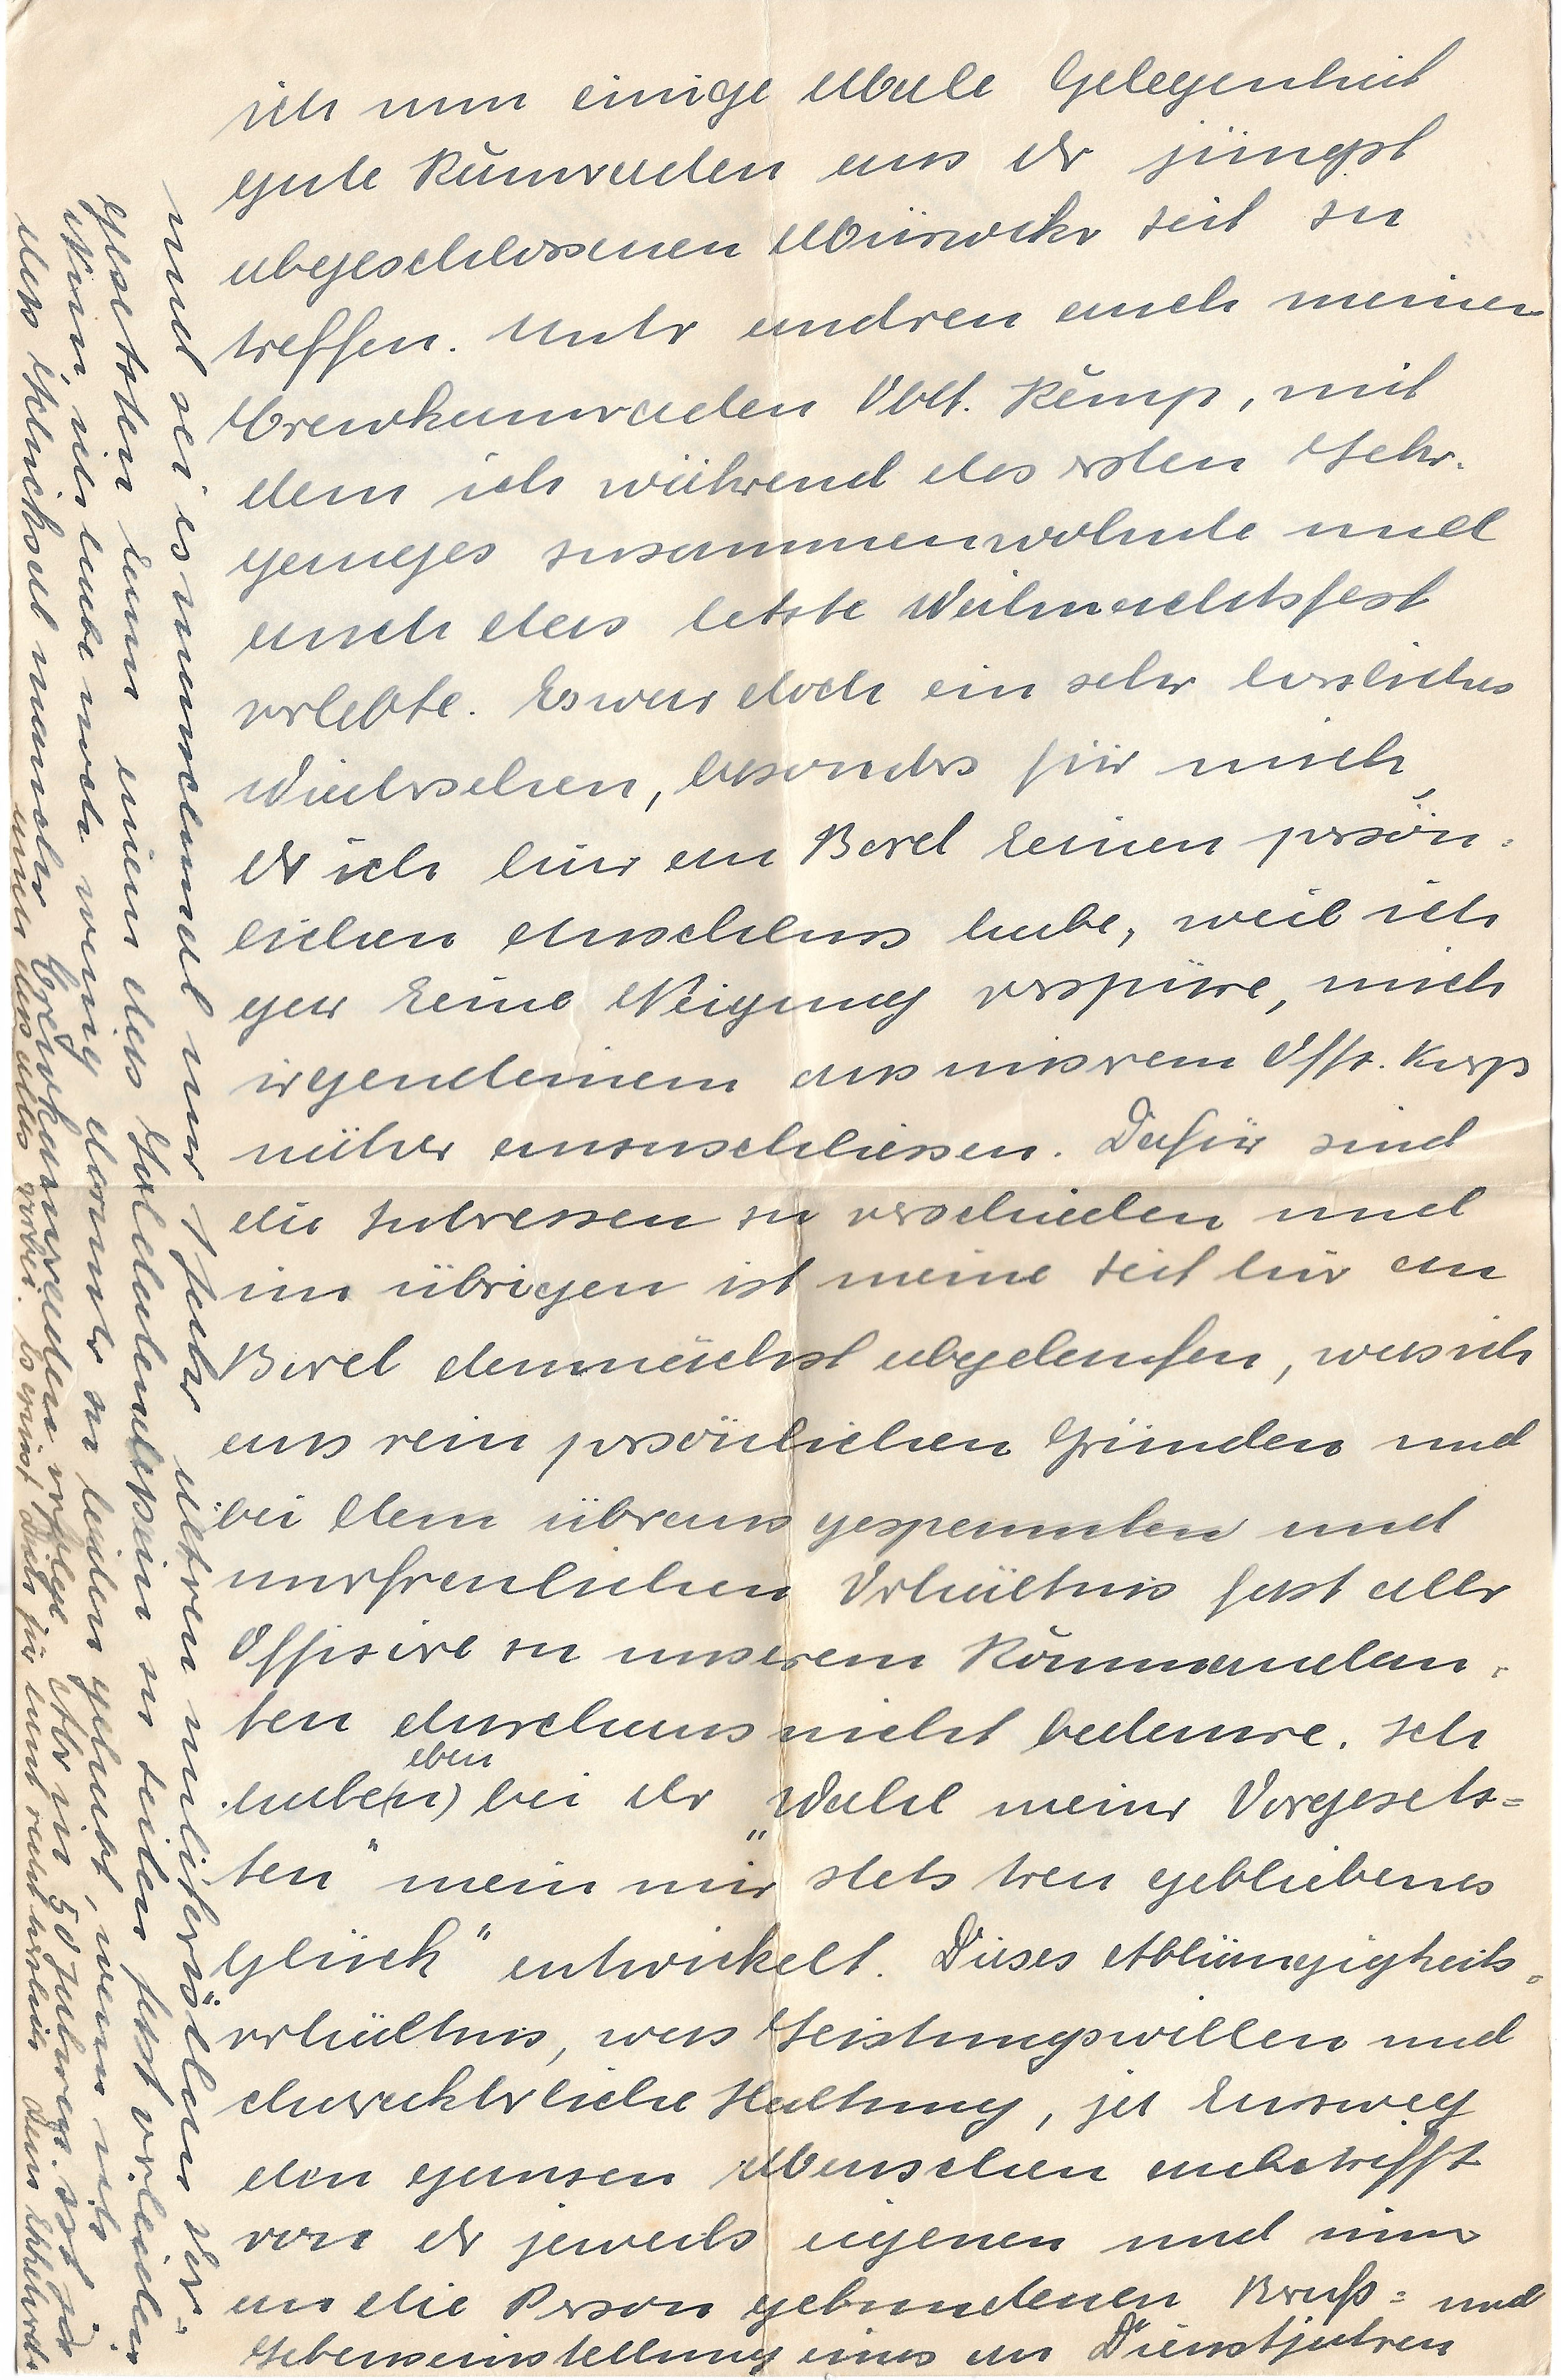 ich nun einige Male Gelegenheit
gute Kameraden aus der jüngst
abgeschlossenen Mürwiker Zeit zu
treffen. Unter andren auch meinen
Crewkameraden Oblt. Kemp, mit
dem ich während des ersten Lehr-
ganges zusammenwohnte und
auch das letzte Weihnachtsfest
verlebte. Es war doch ein sehr herzliches
Wiedersehen, besonders für mich,
der ich hier an Bord keinen persön-
lichen Anschluss habe, weil ich
gar keine Neigung verspüre, mich
irgendeinem aus unsrem Offz. Korps
näher anzuschliessen. Dafür sind
die Interessen zu verschieden und
im übrigen ist meine Zeit hier an
Bord demnächst abgelaufen, was ich
aus rein persönlichen Gründen und
bei dem überaus gespannten und
unerfreulichen Verhältnis fast aller
Offiziere zu unserem Komman­dan-
ten durchaus nicht bedaure. Ich
eben
habe(n) bei der „Wahl meiner Vorgesetz=
ten" mein mir „stets treu gebliebenes
Glück" entwickelt. Dieses Abhängigkeits-
verhältnis, was Leistungswillen und
charakterliche Haltung, ja kurzweg
den ganzen Menschen anbetrifft
von der jeweils eigenen und nun
an die Person gebundenen Berufs= und
Lebenseinstellung eines an Dienstjahren
und sei es manchmal nur 1 Jahr älteren militärischen Vor-
gesetzten kann einem das Soldatsein zu Zeiten fast verleiden.
Nun, ich habe noch wenig darunter zu leiden gehabt, wenn ich
das Schicksal mancher Crewkameraden verfolge. Aber in 50 Jahren ist ja
auch das alles vorbei. Es grüsst Dich für heut recht herzlich Dein